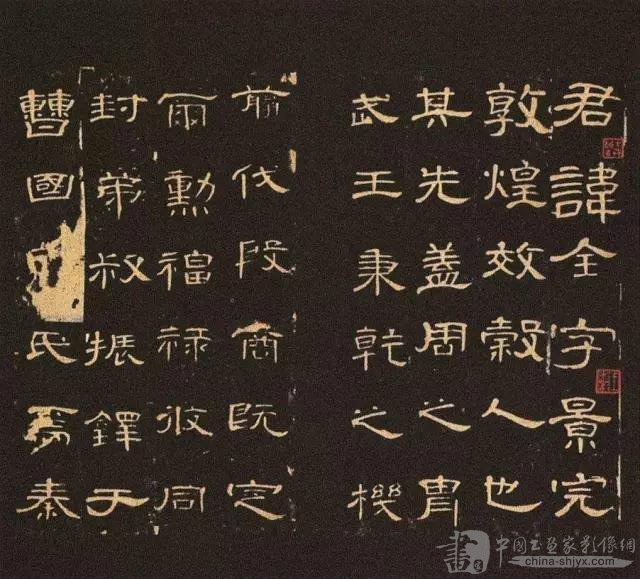 君諱全字景完
敦煌效穀人也
其先蓋周之胄
武王秉乾之機
翦伐殷商既定
爾勳福祿攸同
封弟叔振鐸于
曹國氏焉秦
書
中國书画家影像網
china-shjyx.com